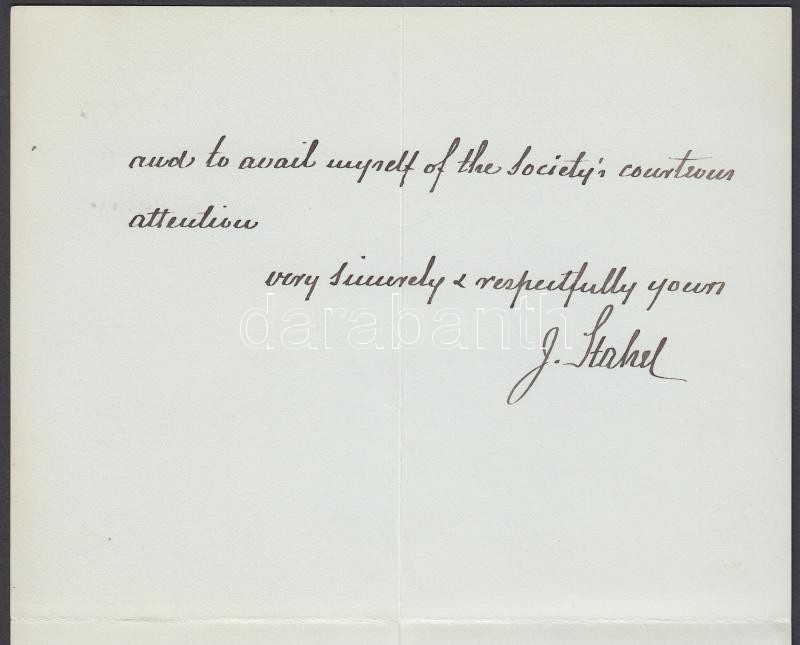 and to avail myself of the Society's courteous
attention
very sincerely & respectfully yours
darabanth
J. Stahel